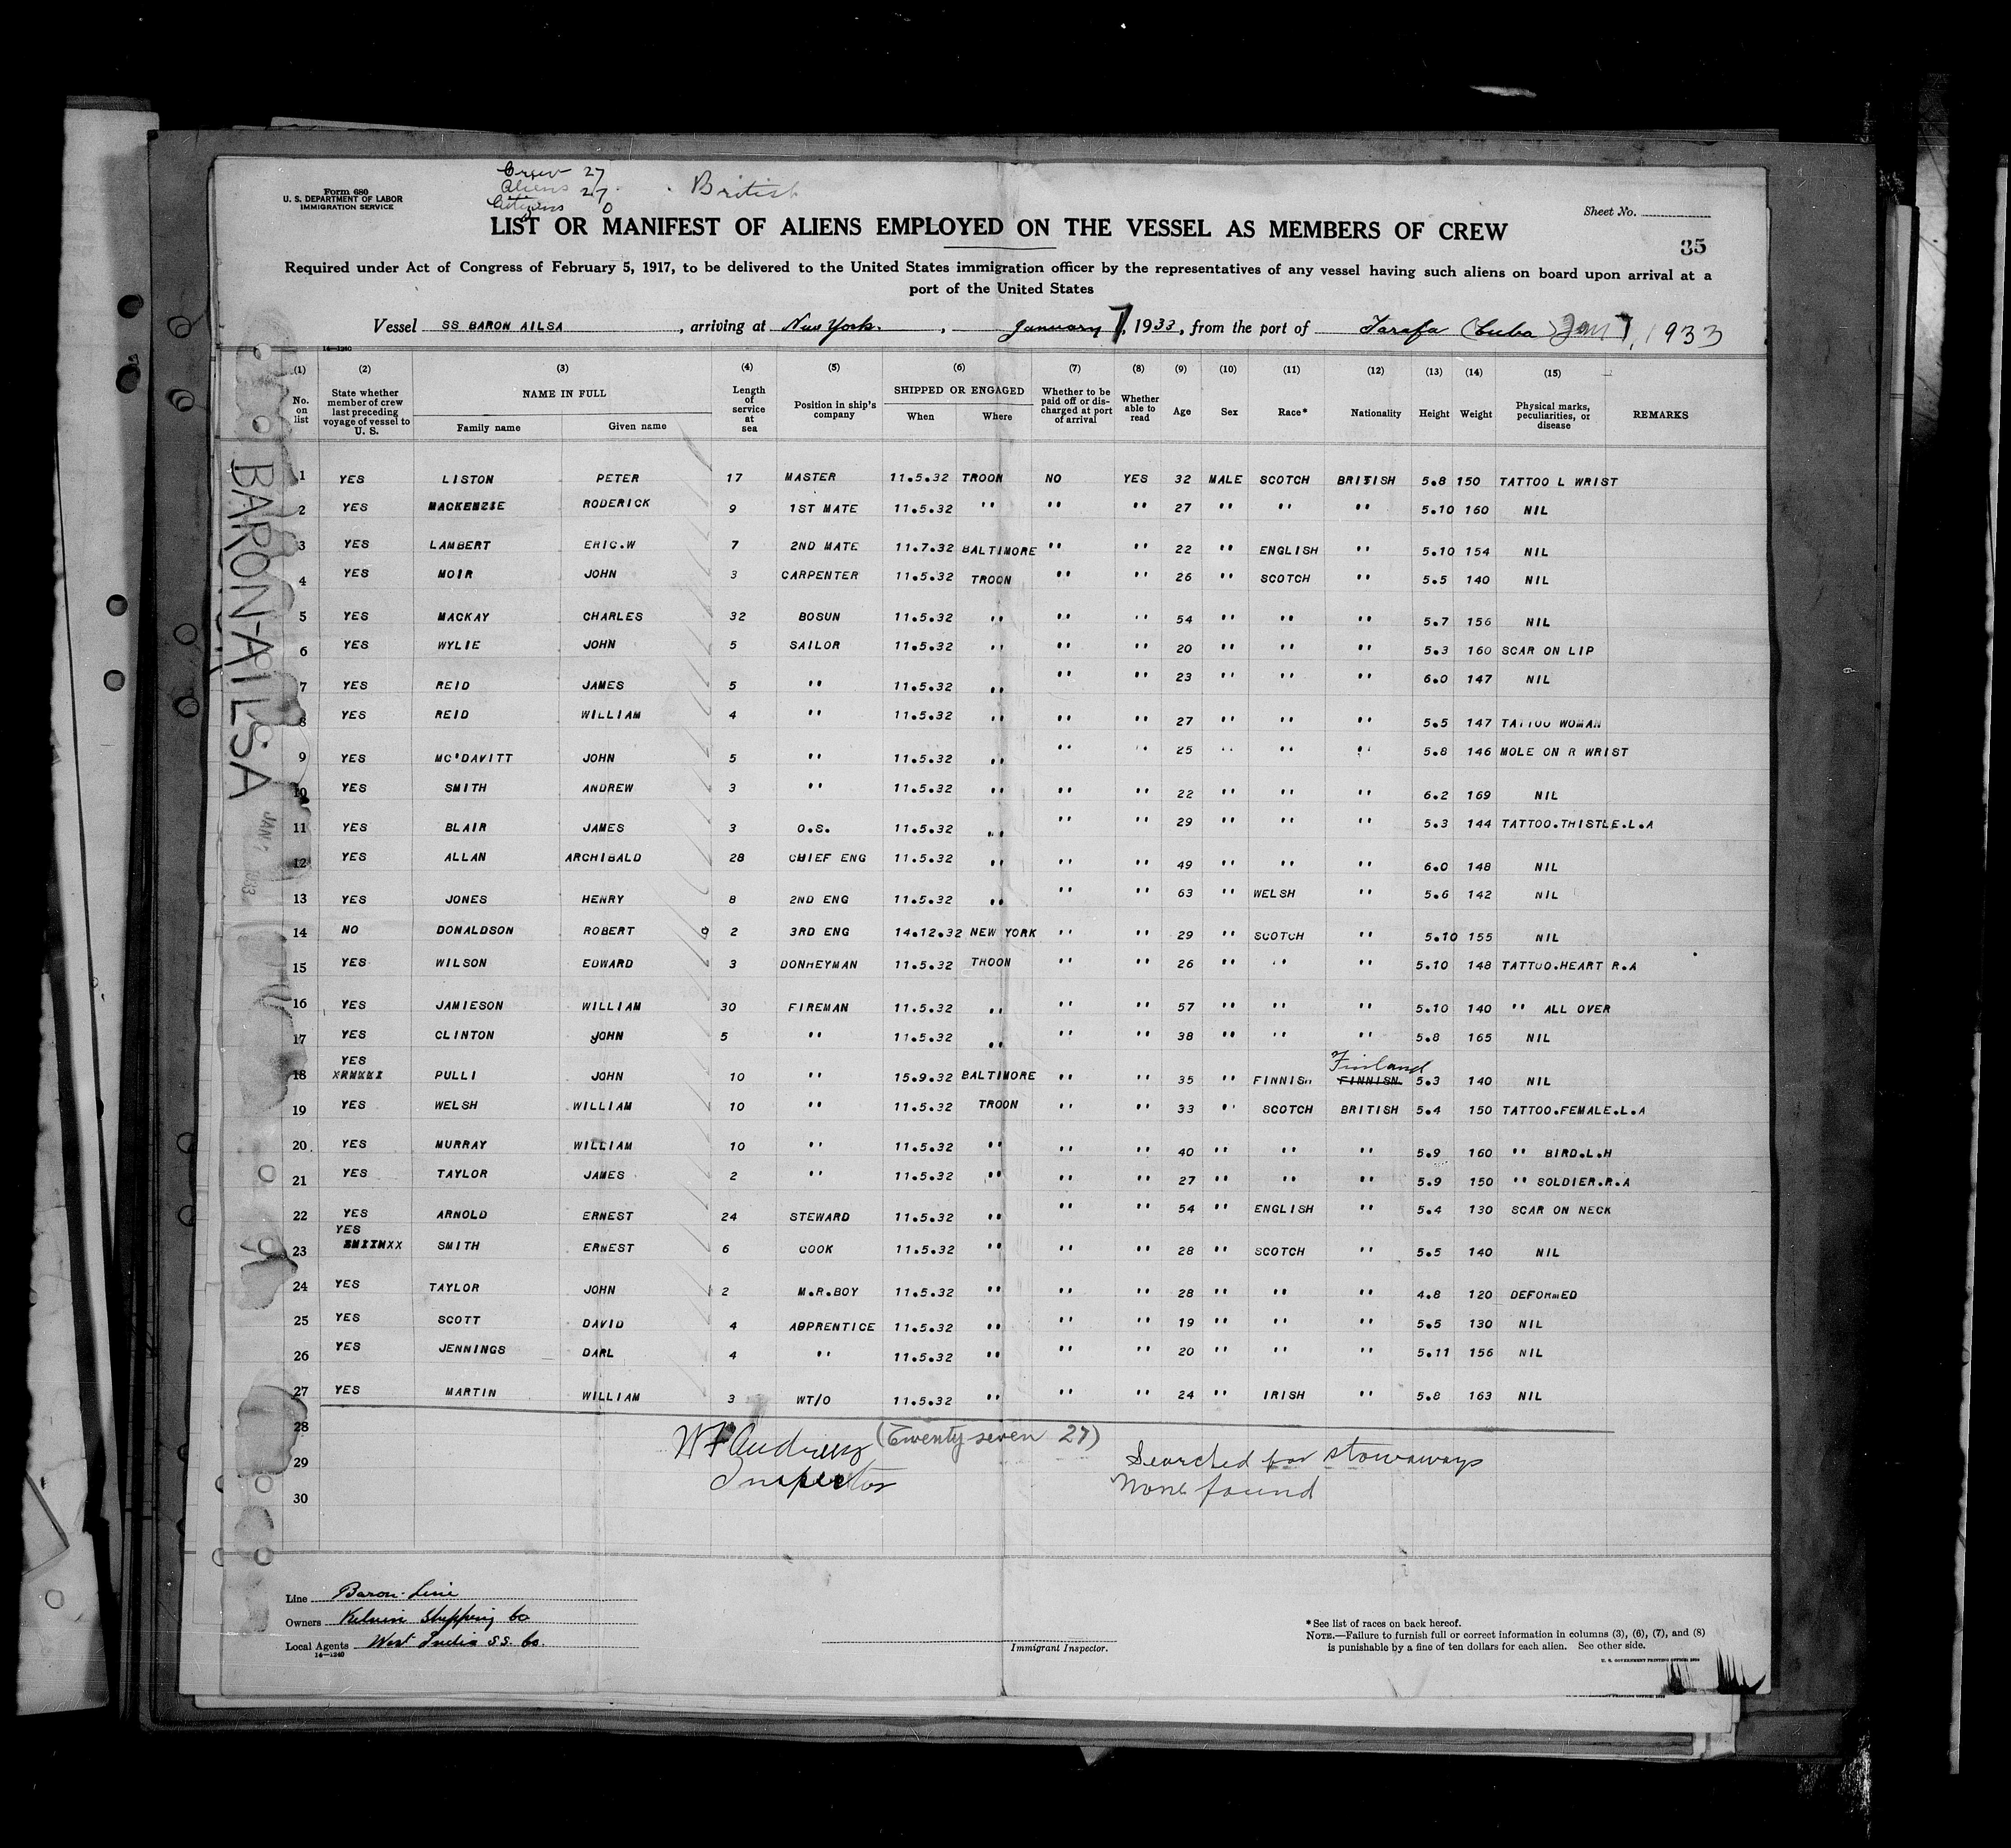 Form 680
U. S. DEPARTMENT OF LABOR
IMMIGRATION SERVICE
Crew 27
Aliens 27
Citizens 0
British
Sheet No.
LIST OR MANIFEST OF ALIENS EMPLOYED ON THE VESSEL AS MEMBERS OF CREW
35
Required under Act of Congress of February 5, 1917, to be delivered to the United States immigration officer by the representatives of any vessel having such aliens on board upon arrival at a
port of the United States
Vessel SS BARON AILSA, arriving at New York, January 7, 1933, from the port of Tarafa (Cuba) Jan 7, 1933
14—1240
(1) No. on list (2) State whether member of crew last preceding voyage of vessel to U. S. (3) NAME IN FULL Family name Given name (4) Length of service at sea (5) Position in ship's company (6) SHIPPED OR ENGAGED When Where (7) Whether to be paid off or discharged at port of arrival (8) Whether able to read (9) Age (10) Sex (11) Race* (12) Nationality (13) Height (14) Weight (15) Physical marks, peculiarities, or disease REMARKS
BARON-AILSA
1 YES LISTON PETER 17 MASTER 11.5.32 TROON NO YES 32 MALE SCOTCH BRITISH 5.8 150 TATTOO L WRIST
2 YES MACKENZIE RODERICK 9 1ST MATE 11.5.32 '' '' '' 27 '' '' '' 5.10 160 NIL
3 YES LAMBERT ERIC.W 7 2ND MATE 11.7.32 BALTIMORE '' '' 22 '' ENGLISH '' 5.10 154 NIL
4 YES MOIR JOHN 3 CARPENTER 11.5.32 TROON '' '' 26 '' SCOTCH '' 5.5 140 NIL
5 YES MACKAY CHARLES 32 BOSUN 11.5.32 '' '' '' 54 '' '' '' 5.7 156 NIL
6 YES WYLIE JOHN 5 SAILOR 11.5.32 '' '' '' 20 '' '' '' 5.3 160 SCAR ON LIP
7 YES REID JAMES 5 '' 11.5.32 '' '' '' 23 '' '' '' 6.0 147 NIL
8 YES REID WILLIAM 4 '' 11.5.32 '' '' '' 27 '' '' '' 5.5 147 TATTOO WOMAN
9 YES MC'DAVITT JOHN 5 '' 11.5.32 '' '' '' 25 '' '' '' 5.8 146 MOLE ON R WRIST
10 YES SMITH ANDREW 3 '' 11.5.32 '' '' '' 22 '' '' '' 6.2 169 NIL
11 YES BLAIR JAMES 3 O.S. 11.5.32 '' '' '' 29 '' '' '' 5.3 144 TATTOO.THISTLE.L.A
12 YES ALLAN ARCHIBALD 28 CHIEF ENG 11.5.32 '' '' '' 49 '' '' '' 6.0 148 NIL
13 YES JONES HENRY 8 2ND ENG 11.5.32 '' '' '' 63 '' WELSH '' 5.6 142 NIL
14 NO DONALDSON ROBERT 2 3RD ENG 14.12.32 NEW YORK '' '' 29 '' SCOTCH '' 5.10 155 NIL
15 YES WILSON EDWARD 3 DONHEYMAN 11.5.32 TROON '' '' 26 '' '' '' 5.10 148 TATTOO.HEART R.A
16 YES JAMIESON WILLIAM 30 FIREMAN 11.5.32 '' '' '' 57 '' '' '' 5.10 140 '' ALL OVER
17 YES CLINTON JOHN 5 '' 11.5.32 '' '' '' 38 '' '' '' 5.8 165 NIL
18 YES PULLI JOHN 10 '' 15.9.32 BALTIMORE '' '' 35 '' FINNISH FINNISN Finland 5.3 140 NIL
19 YES WELSH WILLIAM 10 '' 11.5.32 TROON '' '' 33 '' SCOTCH BRITISH 5.4 150 TATTOO.FEMALE.L.A
20 YES MURRAY WILLIAM 10 '' 11.5.32 '' '' '' 40 '' '' '' 5.9 160 '' BIRD.L.H
21 YES TAYLOR JAMES 2 '' 11.5.32 '' '' '' 27 '' '' '' 5.9 150 '' SOLDIER.R.A
22 YES ARNOLD ERNEST 24 STEWARD 11.5.32 '' '' '' 54 '' ENGLISH '' 5.4 130 SCAR ON NECK
23 YES SMITH ERNEST 6 COOK 11.5.32 '' '' '' 28 '' SCOTCH '' 5.5 140 NIL
24 YES TAYLOR JOHN 2 M.R.BOY 11.5.32 '' '' '' 28 '' '' '' 4.8 120 DEFORMED
25 YES SCOTT DAVID 4 APPRENTICE 11.5.32 '' '' '' 19 '' '' '' 5.5 130 NIL
26 YES JENNINGS DARL 4 '' 11.5.32 '' '' '' 20 '' '' '' 5.11 156 NIL
27 YES MARTIN WILLIAM 3 WT/O 11.5.32 '' '' '' 24 '' IRISH '' 5.8 163 NIL
28 (Twenty seven 27)
29 W F Andrews Searched for stowaways
30 Inspector None found
Line Baron Line
Owners Kelvin Shipping Co
Local Agents West India S.S. Co.
14—1240
Immigrant Inspector.
* See list of races on back hereof.
NOTE.—Failure to furnish full or correct information in columns (3), (6), (7), and (8)
is punishable by a fine of ten dollars for each alien. See other side.